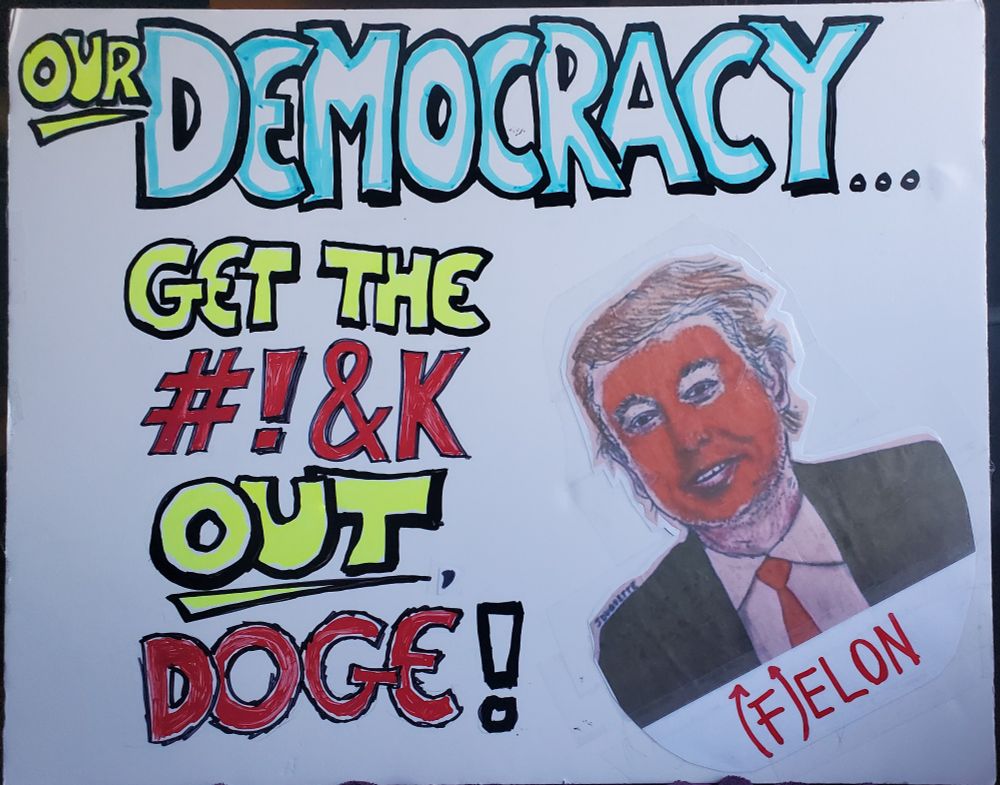 OUR DEMOCRACY...
GET THE
#!&K
OUT,
DOGE!
(F)ELON